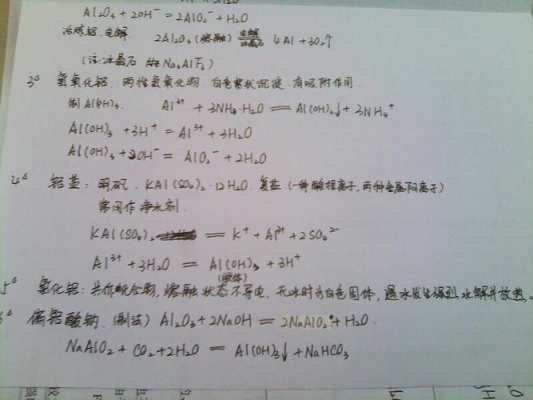 Al₂O₃ + 2OH⁻ = 2AlO₂⁻ + H₂O
冶炼铝.电解 2Al₂O₃(熔融) 电解 冰晶石 4Al + 3O₂↑
(注:冰晶石 Na₃AlF₆)
3° 氢氧化铝: 两性氢氧化物 白色絮状沉淀 有吸附作用.
制Al(OH)₃. Al³⁺ + 3NH₃·H₂O = Al(OH)₃↓ + 3NH₄⁺
Al(OH)₃ + 3H⁺ = Al³⁺ + 3H₂O
Al(OH)₃ + OH⁻ = AlO₂⁻ + 2H₂O
4° 铝盐: 明矾. KAl(SO₄)₂·12H₂O 复盐 (一种酸根离子,两种金属阳离子)
常用作净水剂.
KAl(SO₄)₂ = K⁺ + Al³⁺ + 2SO₄²⁻
Al³⁺ + 3H₂O = Al(OH)₃ + 3H⁺
(胶体)
5° 氯化铝: 共价化合物, 熔融状态不导电. 无水时为白色固体, 遇水发生强烈水解并放热.
6° 偏铝酸钠. (制法) Al₂O₃ + 2NaOH = 2NaAlO₂ + H₂O.
NaAlO₂ + CO₂ + 2H₂O = Al(OH)₃↓ + NaHCO₃